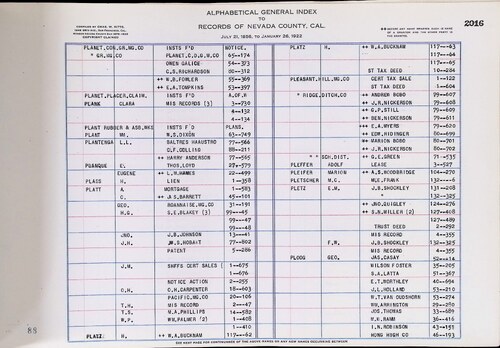 ALPHABETICAL GENERAL INDEX
TO
RECORDS OF NEVADA COUNTY, CAL.
JULY 21, 1856, TO JANUARY 26, 1922
2016
PLANET, CON, GR, MG, CO INSTS F'D NOTICE.
" GR, MG, CO PLANET, C, G, M, CO 65—174
OWEN GALICE 54—373
C.S. RICHARDSON 80—312
++ W.B. FOWLER 35—369
++ E.A. TOMPKINS 53—397
PLANET, PLACER, CLAIM, INSTS F'D A, OF, R
PLANK CLARA MIS RECORDS (3) 3—730
4—132
4—134
PLANT RUBBER & ASB, WKS INSTS F'D PLANS.
PLANT WI. W.S. DIXON 63—749
PLANTENGA L.L. BALTRES HAAUSTRO 77—566
C.F. ODLLING 88—211
++ HARRY ANDERSON 77—565
PLANQUE EL THOS, LOYD 27—579
EUGENE ++ L.W. HAMES 22—499
PLASS H. LIEN 1—358
PLATT A. MORTGAGE 1—583
C. ++ JAS BARRETT 45—101
GEO. ROANNAISE, MG, CO 31—191
H.G. S.E. BLAKEY (3) 99—45
99—47
99—48
JNO. J.B. JOHNSON 13—41
J.H. JM.S. HOBART 77—802
PATENT 5—286
J.M. SHFFS CERT SALES ( 1—675
1—676
NOTICE ACTION 2—255
O.H. C.H. CARPENTER 18—603
PACIFIC, MG, CO 20—106
T.H. MIS RECORD 2—47
T.S. M.A. PHILLIPS 14—582
W.P. WM. PALMER (2) 1—408
1—410
PLATZ H. ++ W.A. BUCKNAM 119—62
PLATZ H. ++ W.A. BUCKNAM 117—63
117—64
117—65
ST TAX DEED 10—284
PLEASANT, HILL, MG, CO CERT TAX SALE 1—122
ST TAX DEED 1—604
" RIDGE, DITCH, CO ++ ANDREW BOBO 79—607
++ J.R. NICKERSON 79—608
++ G.P. STILL 79—609
++ BEN. NICKERSON 79—611
++ E.A. MYERS 79—620
++ EDM, HIDINGER 86—699
++ MARION BOBO 80—701
++ J.R. NICKERSON 80—702
" " SCH, DIST. ++ G.E. GREEN 71—535
PLEFFER ADOLF LEASE 3—527
PLEIFER MARION ++ A.B. HOODBRIDGE 104—270
PLETSCHER M.C. M.E. FRANK 132—6
PLETZ E.M. J.B. SHOCKLEY 131—208
" 132—325
++ JNO. QUIGLEY 124—276
++ S.H. MILLER (2) 127—408
127—489
TRUST DEED 2—292
MIS RECORD 4—355
F.W. J.B. SHOCKLEY 132—325
MIS RECORD 4—355
PLOOG GEO. JAS, CASAY 52—14
WILSON FOSTER 35—205
S.A. LATTA 51—367
E.T. WORTHLEY 40—694
J.L. HOLLAND 53—210
M.T. VAN OUDSHORN 53—274
WM. ARRINGTON 29—280
JOS, THOMAS 33—689
M.H. RAMM 36—416
I.N. ROBINSON 43—157
HONG HUGH GO 46—193
88